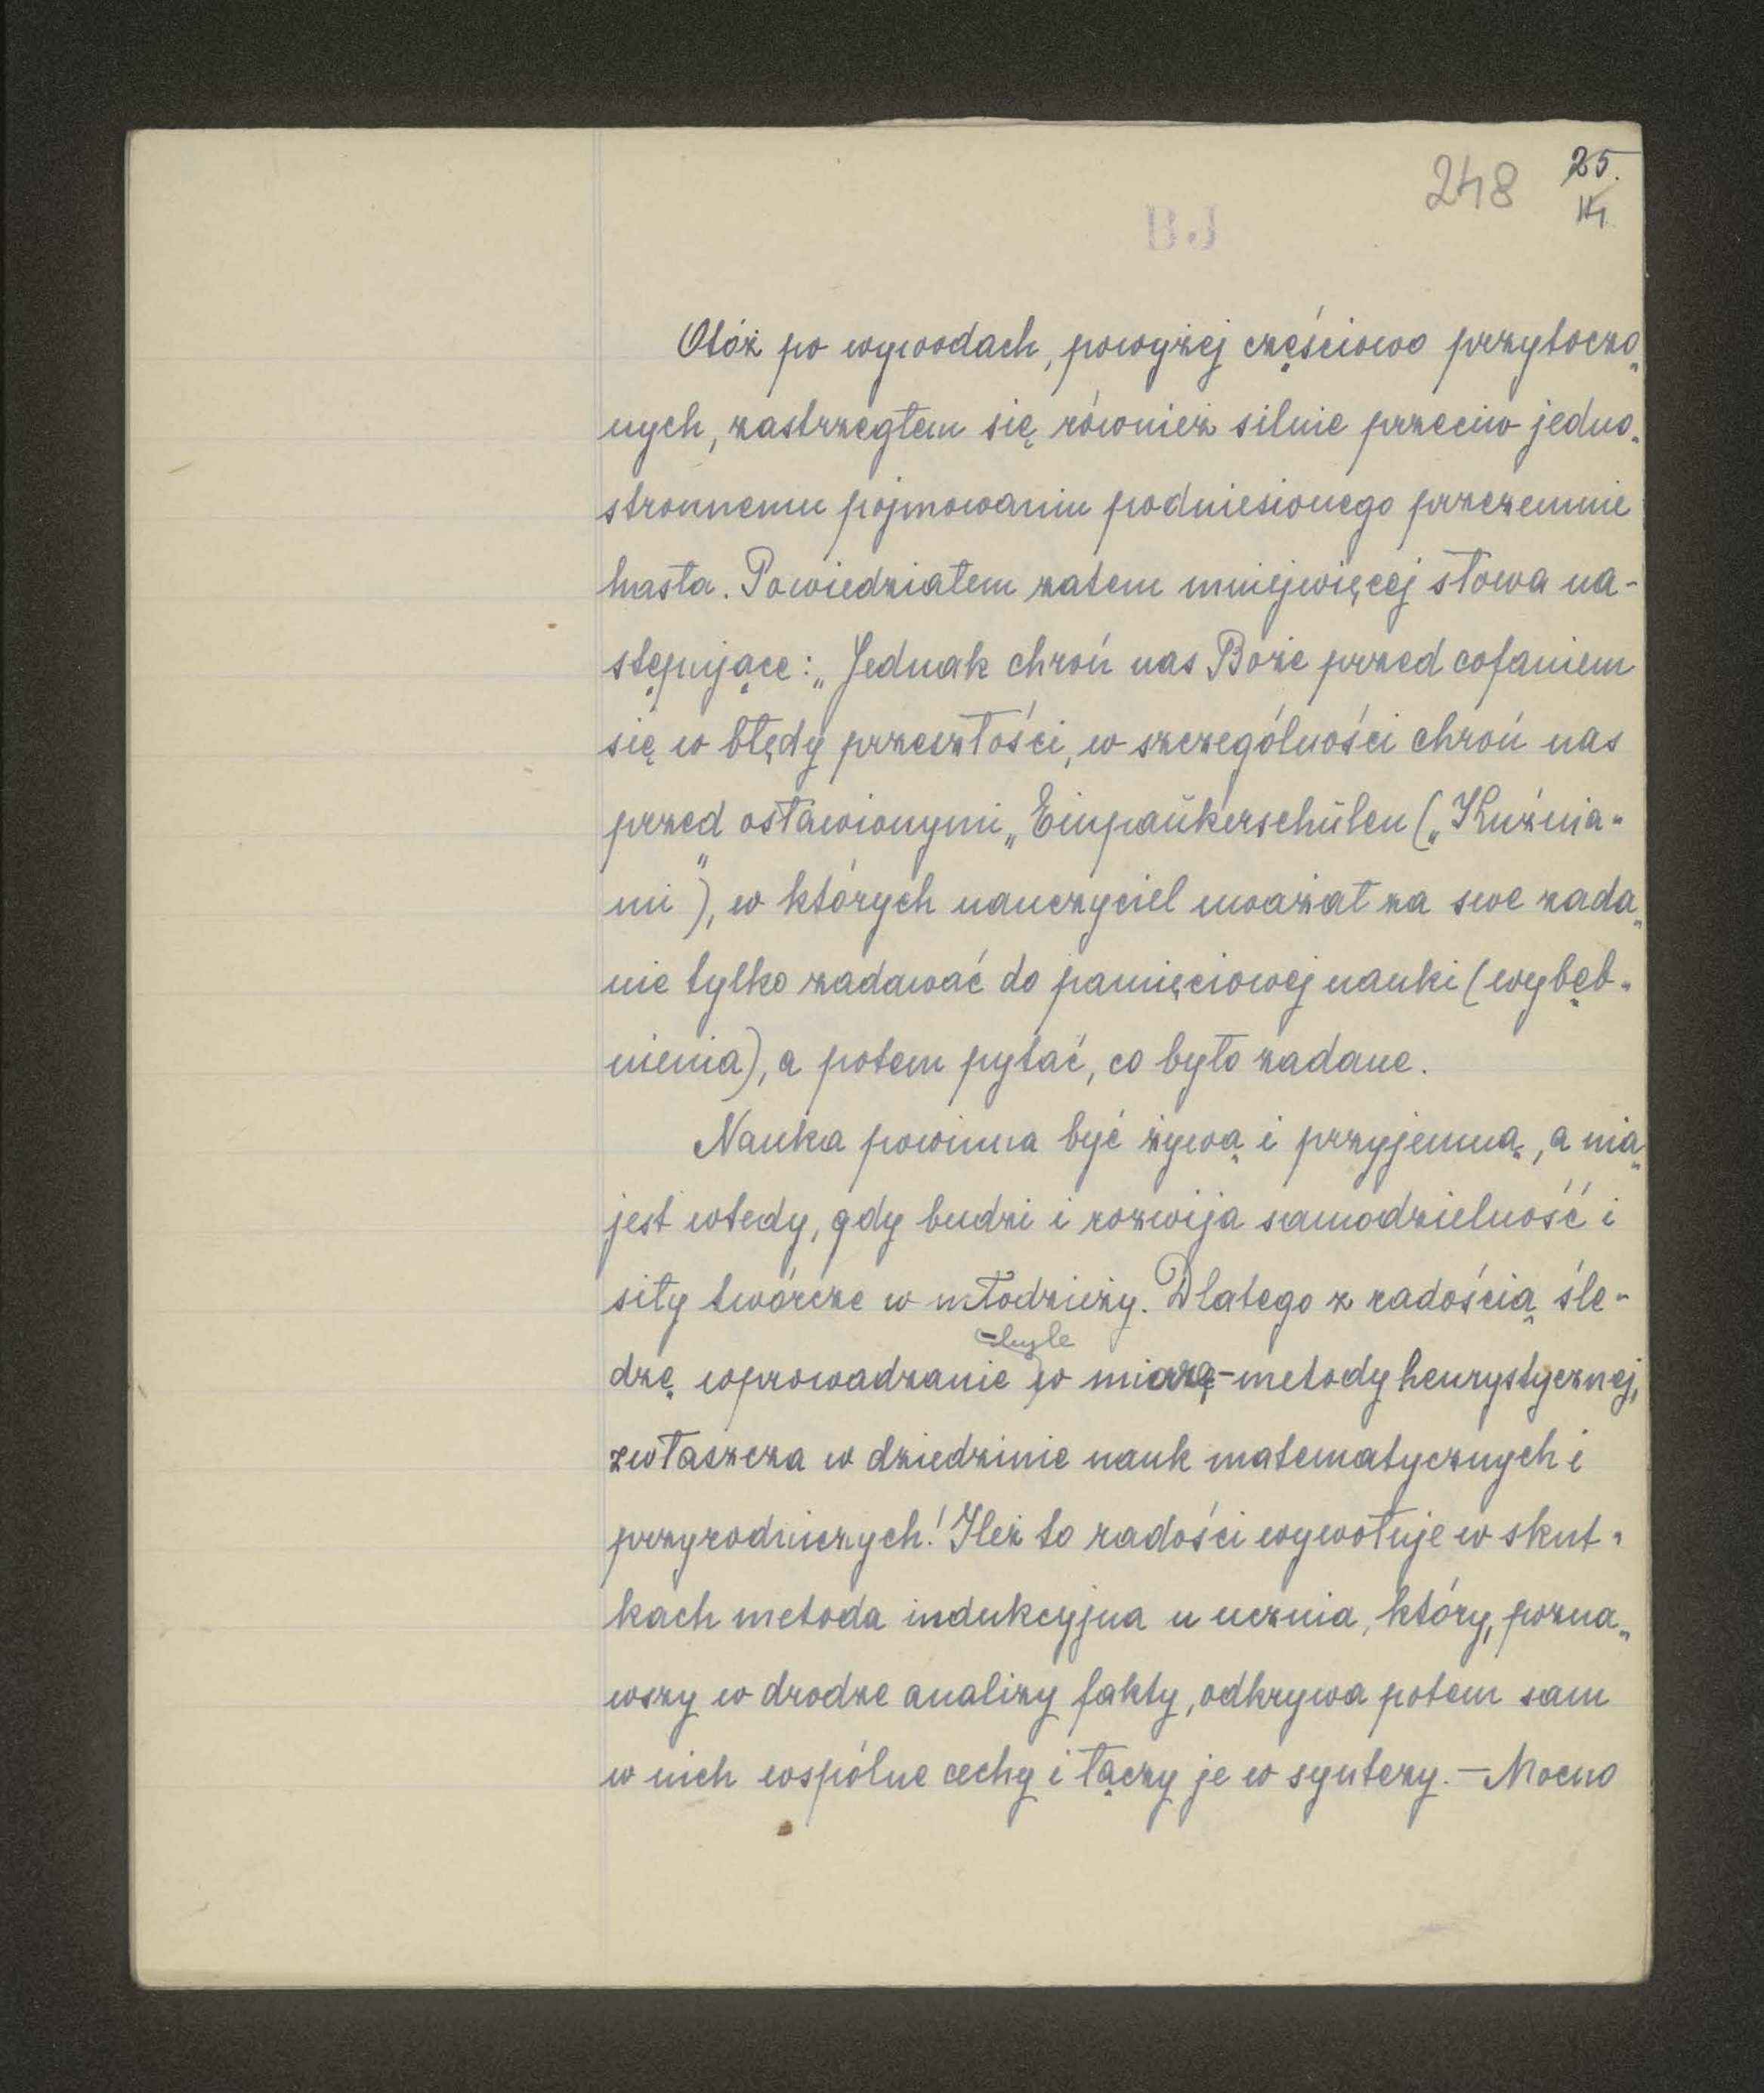 248 25.
14
BJ
Otóż po wywodach, powyżej częściowo przytoczo„
nych, zastrzegłem się również silnie przeciw jedno„
stronnemu pojmowaniu podniesionego przezemnie
hasła. Powiedziałem zatem mniejwięcej słowa na-
stępujące: „Jednak chroń nas Boże przed cofaniem
się w błędy przeszłości, w szczególności chroń nas
przed osławionymi „Einpaŭkerschŭlen („Kuźnia-
mi”), w których nauczyciel uważał za swe zada„
nie tylko zadawać do pamięciowej nauki (wybęb-
nienia), a potem pytać, co było zadane.
Nauka powinna być żywą i przyjemną, a nią
jest wtedy, gdy budzi i rozwija samodzielność i
siły twórcze w młodzieży. Dlatego z radością śle-
dzę wprowadzanie w miarę metody heurystycznej,
zwłaszcza w dziedzinie nauk matematycznych i
przyrodniczych! Ileż to radości wywołuje w skut-
kach metoda indukcyjna u ucznia, który, pozna„
wszy w drodze analizy fakty, odkrywa potem sam
w nich wspólne cechy i łączy je w syntezy. — Mocno